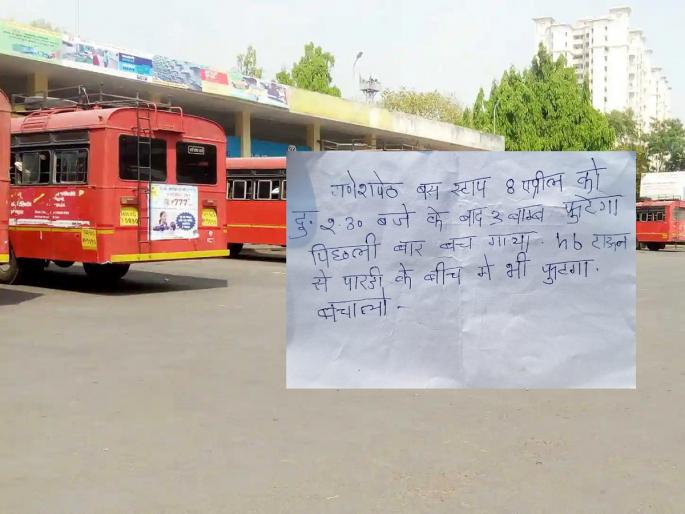 गणेशपेठ बस स्टाप 8 एप्रील को
दु. 2.30 बजे के बाद 3 बाम्ब फुटेगा
पिछली बार बच गाया. hb टाऊन
से पारडी के बीच मे भी फुटगा.
बचालो.
₹777